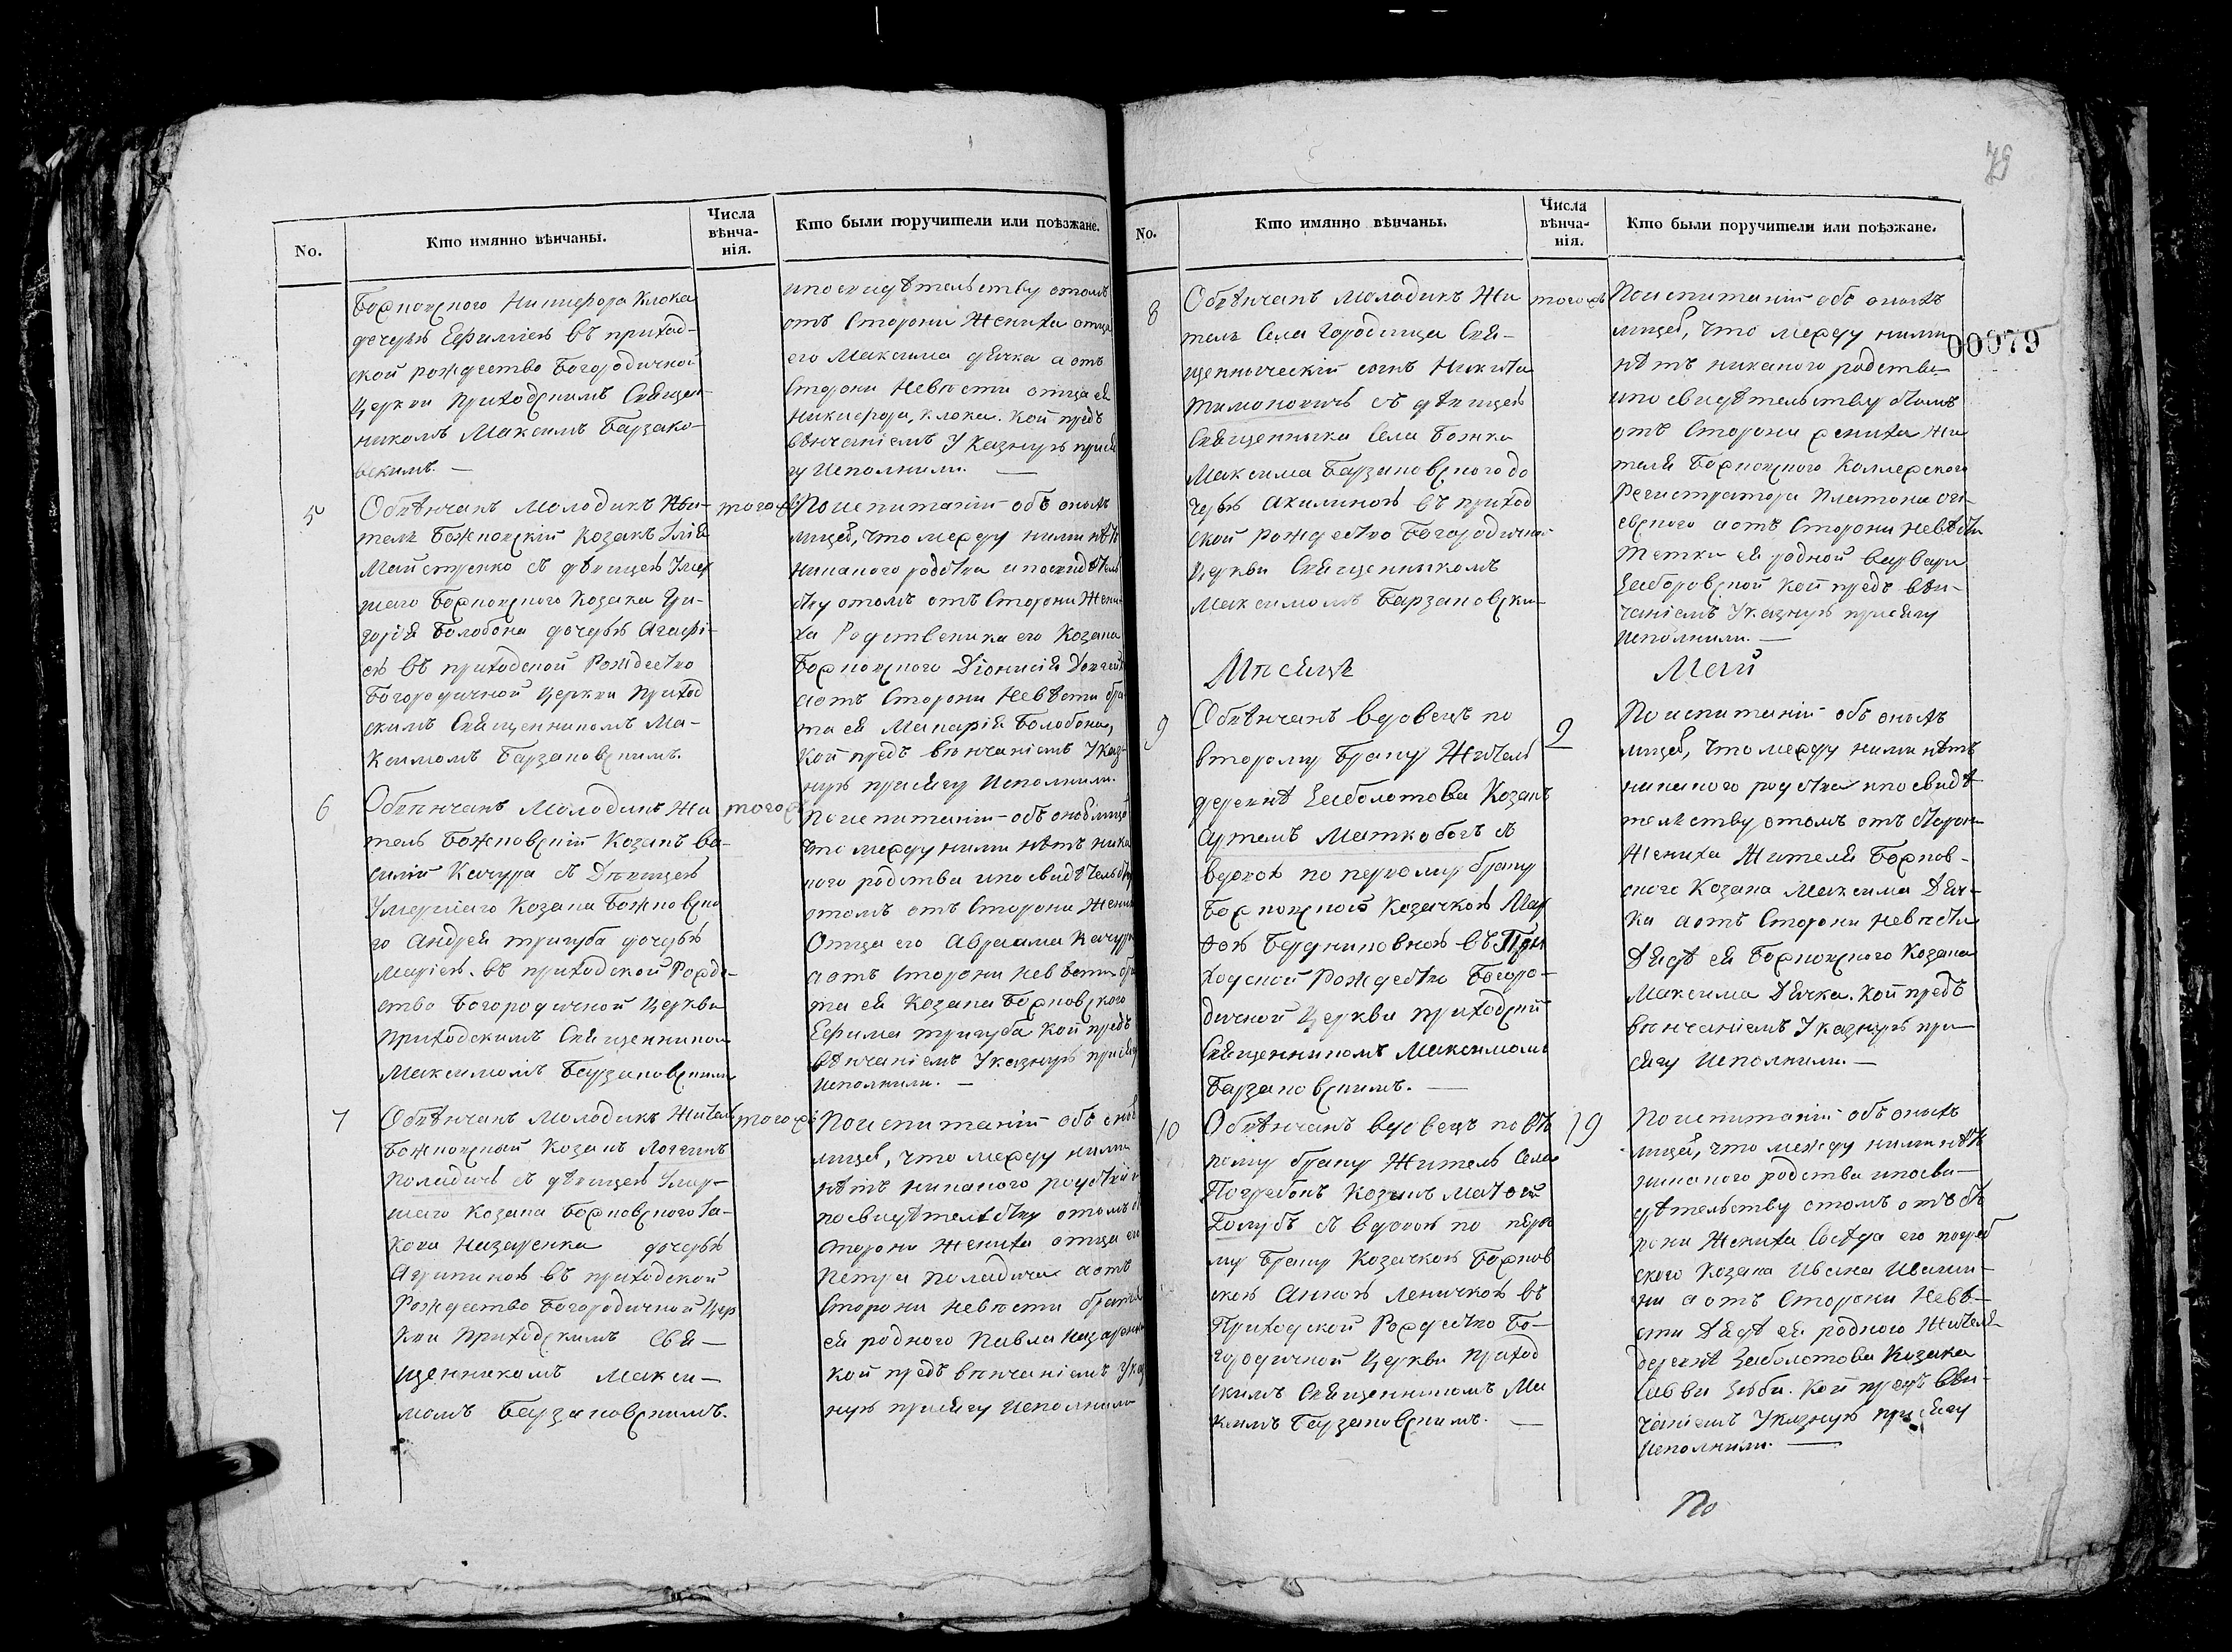 No.
Кто имянно вѣнчаны.
Числа
вѣнча-
нія.
Кто были поручители или поѣзжане.
Божковского Никифора Клока
дочерью Ефиміею въ приход-
ской рождество Богородичной
Церкви Приходскимъ Священ-
никомъ Максимъ Барзако-
вскимъ. —
ипосвидѣтельству отомъ
отъ Стороны Жениха отца
его Максима дѣчка а отъ
Стороны Невѣсти отца ея
Никифора Клока. Кой предъ
вѣнчаніемъ Указную прися
гу Исполнили. —
5
Обвѣнчанъ Молодикъ Жи-
тель Божковскій Козакъ Илія
Майстренко съ дѣвицею Умер
шаго Божковского Козака Гри-
горія Болобона дочерью Агафі-
ею въ приходской Рождество
Богородичной Церкви Приход
скимъ Священникомъ Ма-
ксимомъ Барзаковскимъ.
тогожъ
Поиспитаніи объ оныхъ
лицеѣ, что между ними нѣтъ
никакого родства ипосвидѣтель
ству отомъ отъ Стороны Жени
ха Родственика его Козака
Божковского Діонисія
а отъ Стороны Невѣсти бра
та ея Макарія Болобона,
кой предъ вѣнчаніемъ Указ-
ную присягу Исполнили.
6
Обвѣнчанъ Молодикъ Жи
тель Божковскій Козакъ Ва-
силій Качура съ Дѣвицею
Умершаго Козака Божковско
го Андрея тригуба дочерью
Маріею въ приходской Рожде-
ство Богородичной Церкви
Приходскимъ Священникомъ
Максимомъ Барзаковскимъ
тогожъ
Поиспитаніи объ оноѣ лицеѣ
что между ними нѣтъ ника
кого родства ипосвидѣтельству
отомъ отъ Стороны Жених
Отца его Авраама Качуры
а отъ Стороны невѣсти бра
та ея Козака Божковского
Ефима тригуба кой предъ
вѣнчаніемъ Указную присягу
Исполнили. —
7
Обвѣнчанъ Молодикъ Житель
Божковскый Козакъ Логгинъ
Поладичъ съ дѣвицею Умер-
шаго Козака Божковского Іа-
кова Назаренка дочерью
Агрипиною въ приходской
Рождество Богородичной Цер
кви Приходскимъ Свя-
щенникомъ Макси-
момъ Барзаковскимъ.
тогожъ
Поиспитаніи объ оноѣ
лицеѣ, что между ними
нѣтъ никакого родства и
посвидѣтельству отомъ отъ
Стороны Жениха отца его
Петра Поладича а отъ
Стороны невѣсти брата
ея родного Павла Назаренка
кой предъ вѣнчаніемъ Указ
ную присягу Исполнили
79
00079
No.
Кто имянно вѣнчаны.
Числа
вѣнча-
нія.
Кто были поручители или поѣзжане.
8
Обвѣнчанъ Молодикъ Жи
тель Села Городища Свя-
щенническій сынъ Никита
Тимоновичъ съ дѣвицею
Священныка Села Божка
Максима Барзаковского до
черью Акилиною въ приход
ской рождество Богородичной
Церкви Священныкомъ
Максимомъ Барзаковски-
тогожъ
Поиспитаніи объ оныхъ
лицеѣ, что между ними
нѣтъ никакого родства
ипосвидѣтельству отомъ
отъ Стороны жениха Жи
теля Божковского Коллежского
Регистратора Платона
а отъ Стороны невѣсти
тетки ея родной Варвари
Заборовской кой предъ вѣн-
чаніемъ Указную присягу
Исполнили. —
Мѣсяцъ
Маій
9
Обвѣнчанъ вдовецъ по
второму браку Житель
деревнѣ Заболотова Козакъ
Артемъ Маткобогъ съ
вдовою по первому браку
Божковской Козачкою Мар
ѳою Бердниковною въ При
ходской Рождество Богоро-
дичной Церкви приходскій
Священникомъ Максимомъ
Барзаковскимъ. —
2
Поиспитаніи объ оныхъ
лицеѣ, что между ними нѣтъ
никакого родства ипосвидѣ
тельству отомъ отъ Сторон
Жениха Жителя Божков-
ского Козака Максима Дяч-
ка а отъ Стороны невѣсти
Дядѣ ея Божковского Козака
Максима Дячка. Кой предъ
вѣнчаніемъ Указную при-
сягу Исполнили. —
10
Обвѣнчанъ вдовецъ по вто
рому браку Житель Села
Погребокъ Козакъ Матѳей
Голубъ съ вдовою по перво
му браку Козачкою Божков
скою Анною Леничкою въ
Приходской Рождество Бо-
городичной Церкви приход
скимъ Священникомъ Ма
ксимъ Барзаковскимъ. —
19
Поиспитаніи объ оныхъ
лицеѣ, что между ними нѣтъ
никакого родства ипосви-
дѣтельству отомъ отъ Сто
роны Жениха Сосѣда его погреб
ского Козака Ивана Иваши-
ни а отъ Стороны Невѣ-
сти Дядѣ ея родного Жителя
деревнѣ Заболотова Козака
Саввы Зяби. Кой предъ вѣн-
чаніемъ Указную присягу
Исполнили. —
По